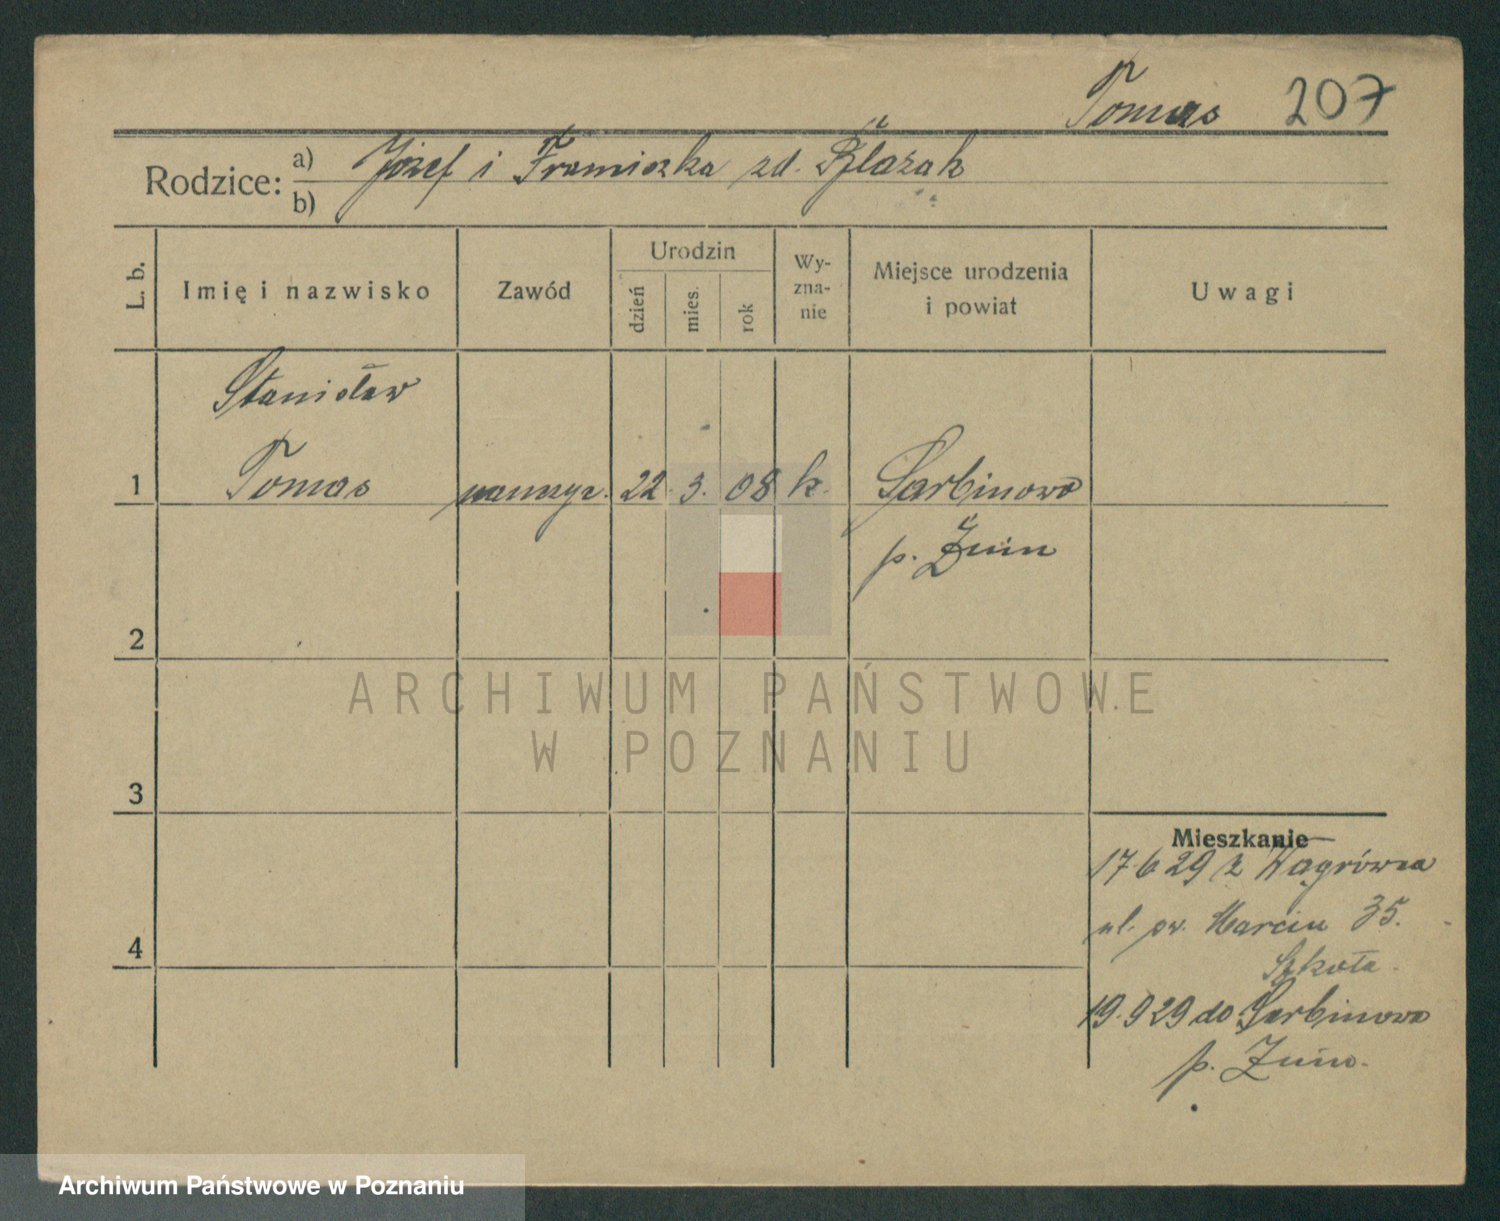 Tomas 207
Rodzice: a) Józef i Franciszka zd. Błażak
b)
L. b. Imię i nazwisko Zawód Urodzin dzień mies. rok Wy-zna-nie Miejsce urodzenia i powiat Uwagi
Stanisław
1 Tomas nauczyc. 22 3. 08 k. Sarbinowo
p. Żnin
2
ARCHIWUM PAŃSTWOWE
W POZNANIU
3
Mieszkanie
17 6 29 z Wągrówca
ul. św. Marcin 35.
4
Szkoła
19.9 29 do Sarbinowo
p. Żnin.
Archiwum Państwowe w Poznaniu